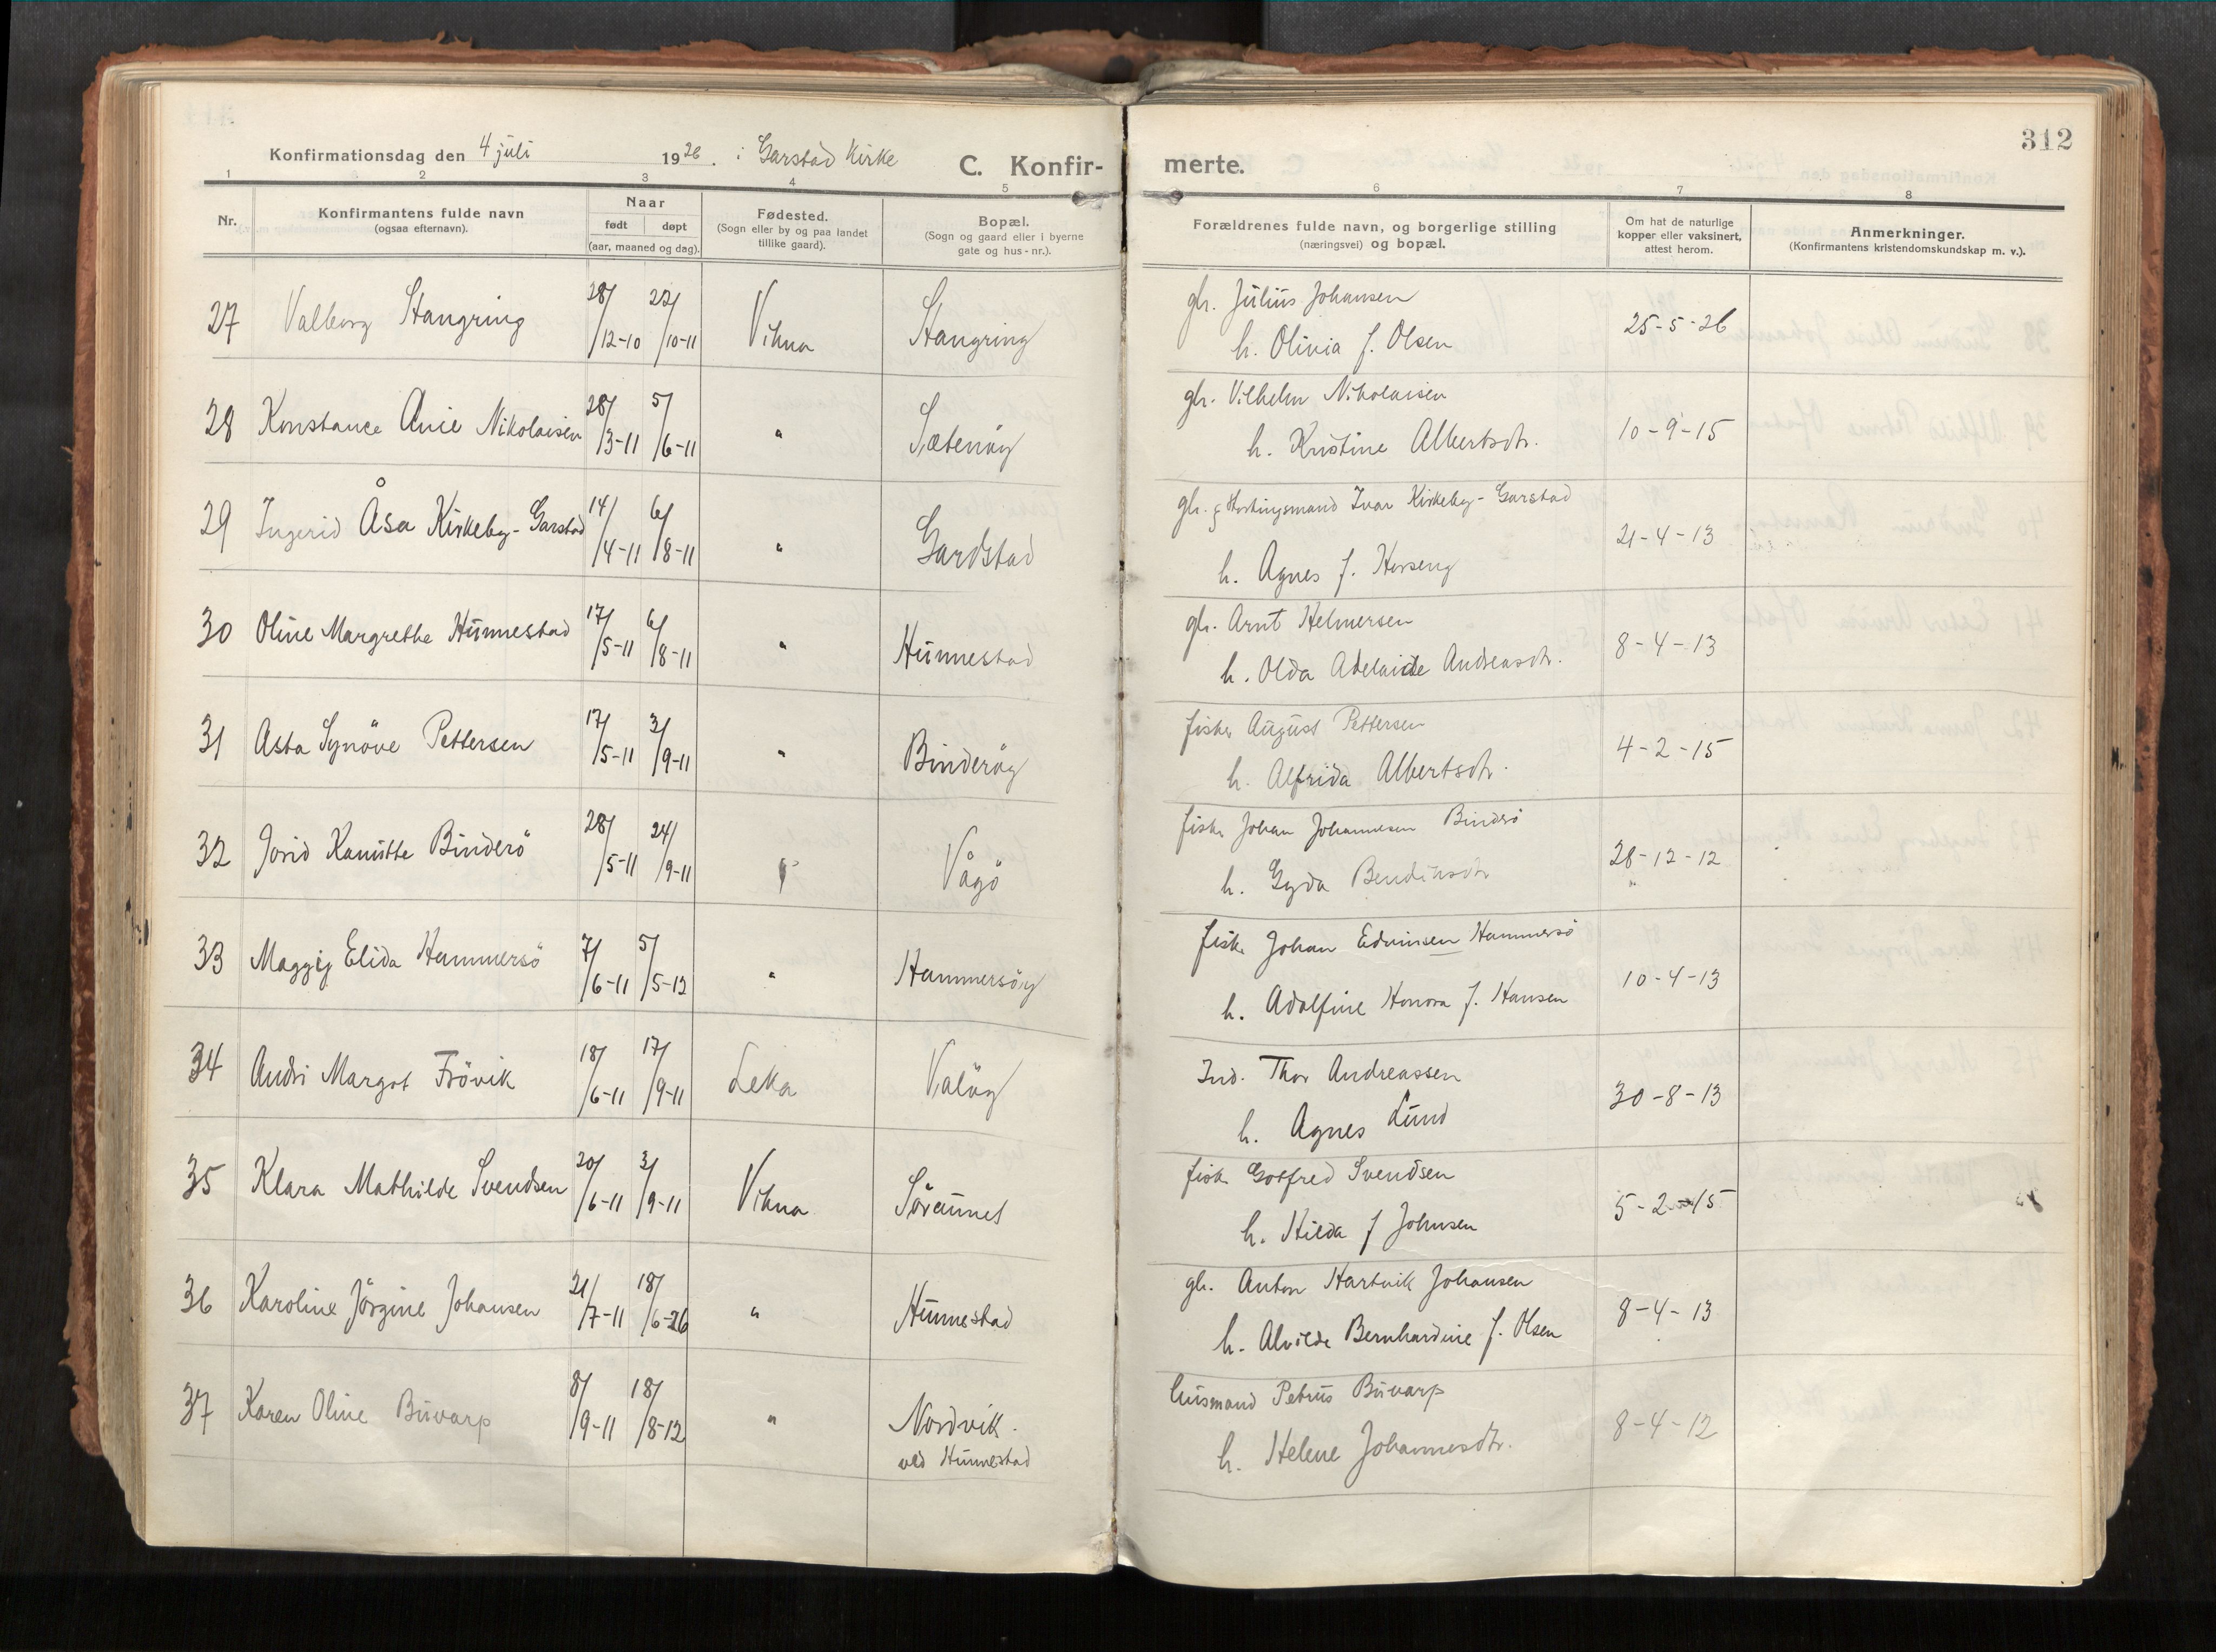 312
Konfirmationsdag den 4 juli 1926. i Garstad Kirke
C. Konfir- merte.
1 2 3 4 5 6 7 8
Nr.
Konfirmantens fulde navn
(ogsaa efternavn).
Naar
født døpt
(aar, maaned og dag).
Fødested.
(Sogn eller by og paa landet
tillike gaard).
Bopæl.
(Sogn og gaard eller i byerne
gate og hus-nr.).
Forældrenes fulde navn, og borgerlige stilling
(næringsvei) og bopæl.
Om hat de naturlige
kopper eller vaksinert,
attest herom.
Anmerkninger.
(Konfirmantens kristendomskundskap m. v.).
27 Valborg Stangring 28/12-10 22/10-11 Vikna Stangring gbr. Julius Johansen 25-5-26
h. Olivia f. Olsen
28 Konstance Anie Nikolaisen 28/3-11 5/6-11 " Sætenöy gbr. Vilhelm Nikolaisen 10-9-15
h. Kristine Albertsdtr.
29 Ingerid Åsa Kirkeby-Garstad 14/4-11 6/8-11 " Gardstad gbr. g Stortingsmand Ivar Kirkeby-Garstad 21-4-13
h. Agnes f. Horseng
30 Oline Margrethe Hunnestad 17/5-11 6/8-11 " Hunnestad gbr. Arnt Helmersen 8-4-13
h. Olda Adelaide Andreasdtr.
31 Asta Synöve Pettersen 17/5-11 3/9-11 " Binderöy fisker August Pettersen 4-2-15
h. Alfrida Albertsdtr.
32 Jorid Kamitte Binderö 28/5-11 24/9-11 " Vågö fisker Johan Johannesen Binderö 28-12-12
h. Gyda Bendiksdtr
33 Maggij Elida Hammersö 7/6-11 5/5-12 " Hammersöy fisk. Johan Edvinsen Hammersö 10-4-13
h. Adolfine Honora f. Hansen
34 Andri Margot Frövik 18/6-11 17/9-11 Leka Valöy Ind. Thor Andreassen 30-8-13
h. Agnes Lund
35 Klara Mathilde Svendsen 20/6-11 3/9-11 Vikna Söraunet fisk. Gotfred Svendsen 5-2-15
h. Hilda f Johnsen
36 Karoline Jörgine Johansen 21/7-11 18/6-26 " Hunnestad gbr. Anton Hartvik Johansen 8-4-13
h. Alvilde Bernhardine f. Olsen
37 Karen Oline Buvarp 8/9-11 18/8-12 " Nordvik. husmand Petrus Buvarp 8-4-12
ved Hunnestad h. Helene Johannesdtr.